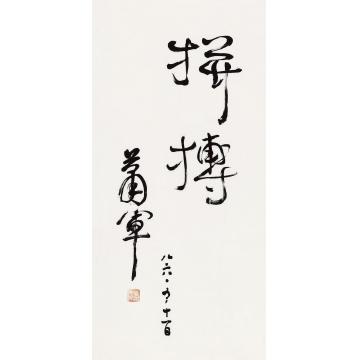 拼搏
蕭軍
八六·五·十一日